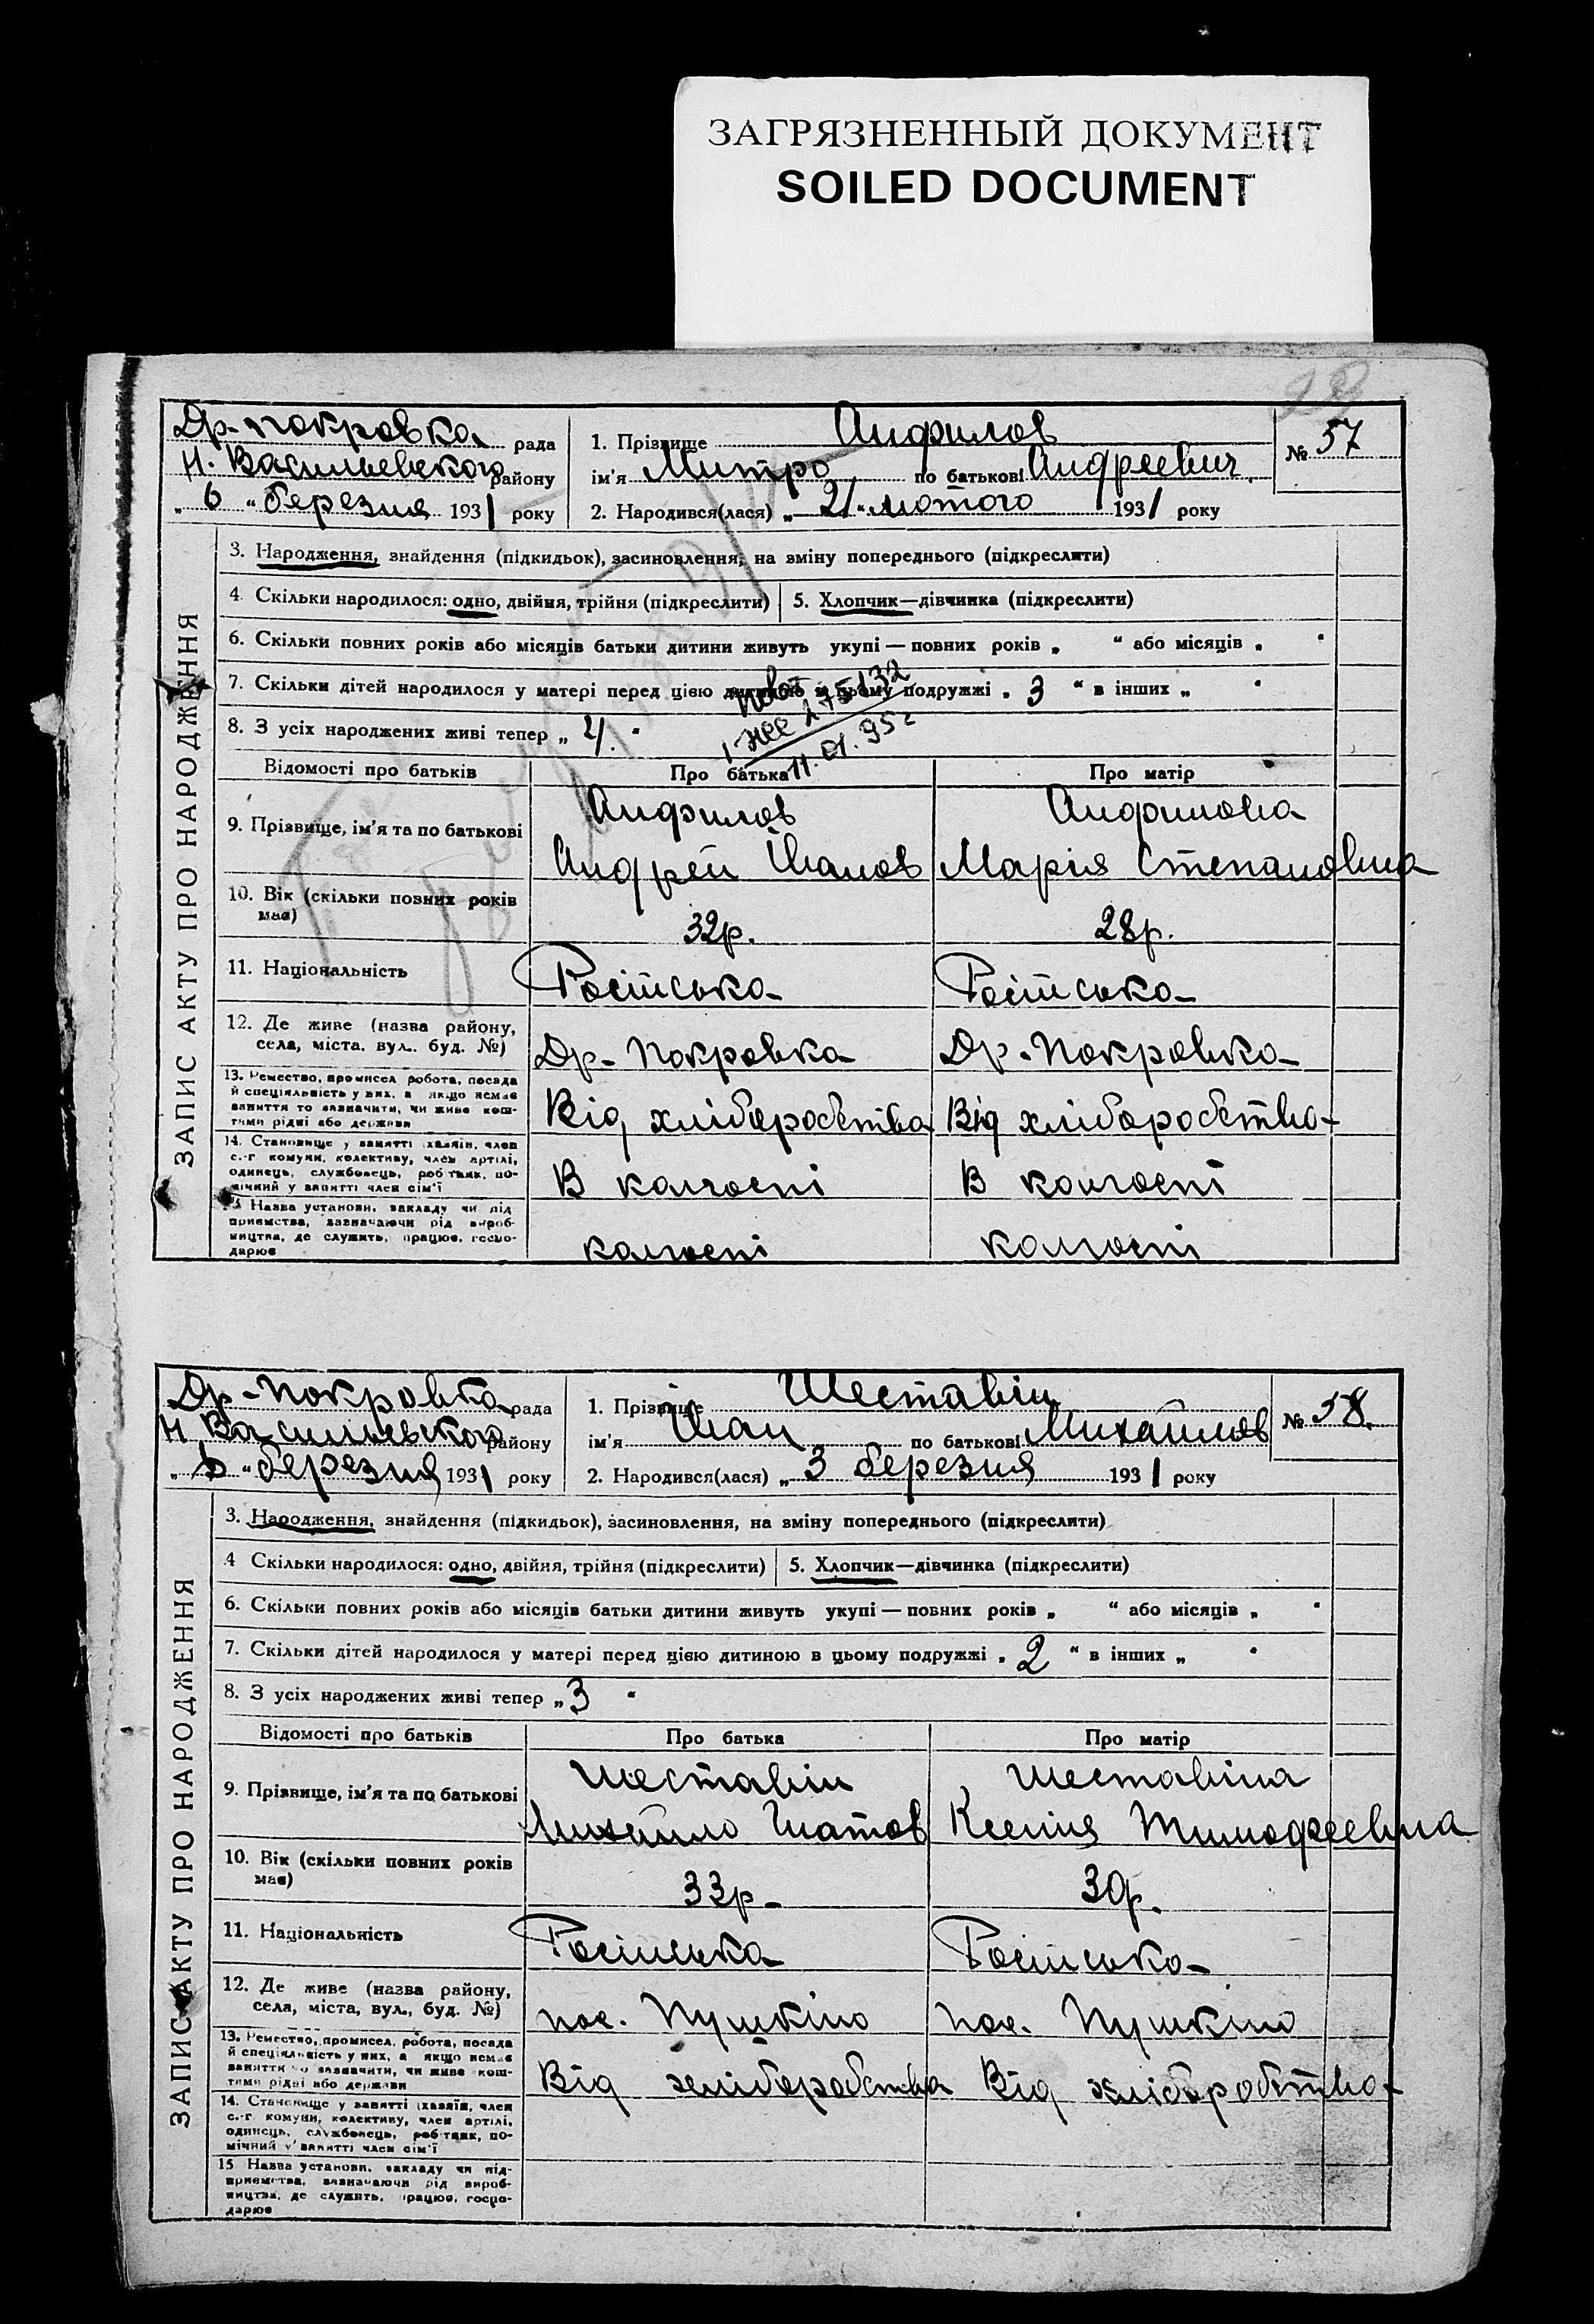 ЗАГРЯЗНЕННЫЙ ДОКУМЕНТ
SOILED DOCUMENT
Др-покровка рада
Н. Васильевского району
„ 6 “ березня 1931 року
1. Прізвище Анфилов
ім'я Митро по батькові Андреевич
2. Народився(лася) „ 21 “ лютого 1931 року
№ 57
ЗАПИС АКТУ ПРО НАРОДЖЕННЯ
3. Народження, знайдення (підкидьок), засиновлення, на зміну попереднього (підкреслити)
4. Скільки народилося: одно, двійня, трійня (підкреслити)
5. Хлопчик—дівчинка (підкреслити)
6. Скільки повних років або місяців батьки дитини живуть укупі — повних років „ “ або місяців „ “
7. Скільки дітей народилося у матері перед цією дитиною в цьому подружжі „ 3 “ в інших „ “
8. З усіх народжених живі тепер „ 4. “
11.01.95г
Відомості про батьків
Про батька
Про матір
9. Прізвище, ім'я та по батькові
Анфилов
Андрей Іванов
Анфилова
Марія Степановна
10. Вік (скільки повних років має)
32р.
28р.
11. Національність
Російська
Російська
12. Де живе (назва району, села, міста, вул. буд. №)
Др-Покровка
Др-Покровка
13. Ремество, промисел, робота, посада й спеціяльність у них, а якщо немає заняття то зазначити, чи живе коштами рідні або держави
Від хліборобства
Від хліборобства
14. Становище у занятті (хазяїн, член с.-г. комуни, колективу, член артілі, одинець, службовець, робітник, помічний у занятті член сім'ї
В колгоспі
В колгоспі
15 Назва установи, закладу чи підприємства, зазначаючи рід виробництва, де служить, працює, господарює
колгоспі
колгоспі
Др-Покровка рада
Н Васильевского району
„ 6 “ березня 1931 року
1. Прізвище Шеставін
ім'я Іван по батькові Михайлов
2. Народився(лася) „ 3 березня 1931 року
№ 58.
ЗАПИС АКТУ ПРО НАРОДЖЕННЯ
3. Народження, знайдення (підкидьок), засиновлення, на зміну попереднього (підкреслити)
4 Скільки народилося: одно, двійня, трійня (підкреслити)
5. Хлопчик—дівчинка (підкреслити)
6. Скільки повних років або місяців батьки дитини живуть укупі — повних років „ “ або місяців „ “
7. Скільки дітей народилося у матері перед цією дитиною в цьому подружжі „ 2 “ в інших „ “
8. З усіх народжених живі тепер „ 3 “
Відомості про батьків
Про батька
Про матір
9. Прізвище, ім'я та по батькові
Шеставін
Михайло Ігнатов
Шеставіна
Ксенія Тимофеевна
10. Вік (скільки повних років має)
33р.
30р.
11. Національність
Російська
Російська
12. Де живе (назва району, села, міста, вул., буд. №)
пос. Пушкіно
пос. Пушкіно
13. Ремество, промисел, робота, посада й спеціяльність у них, а якщо немає заняття то зазначити, чи живе коштами рідні або держави
Від хліборобства
Від хліборобства
14. Становище у занятті (хазяїн, член с.-г. комуни, колективу, член артілі, одинець, службовець, робітник, помічний у занятті член сім'ї
15 Назва установи, закладу чи підприємства, зазначаючи рід виробництва, де служить, працює, господарює